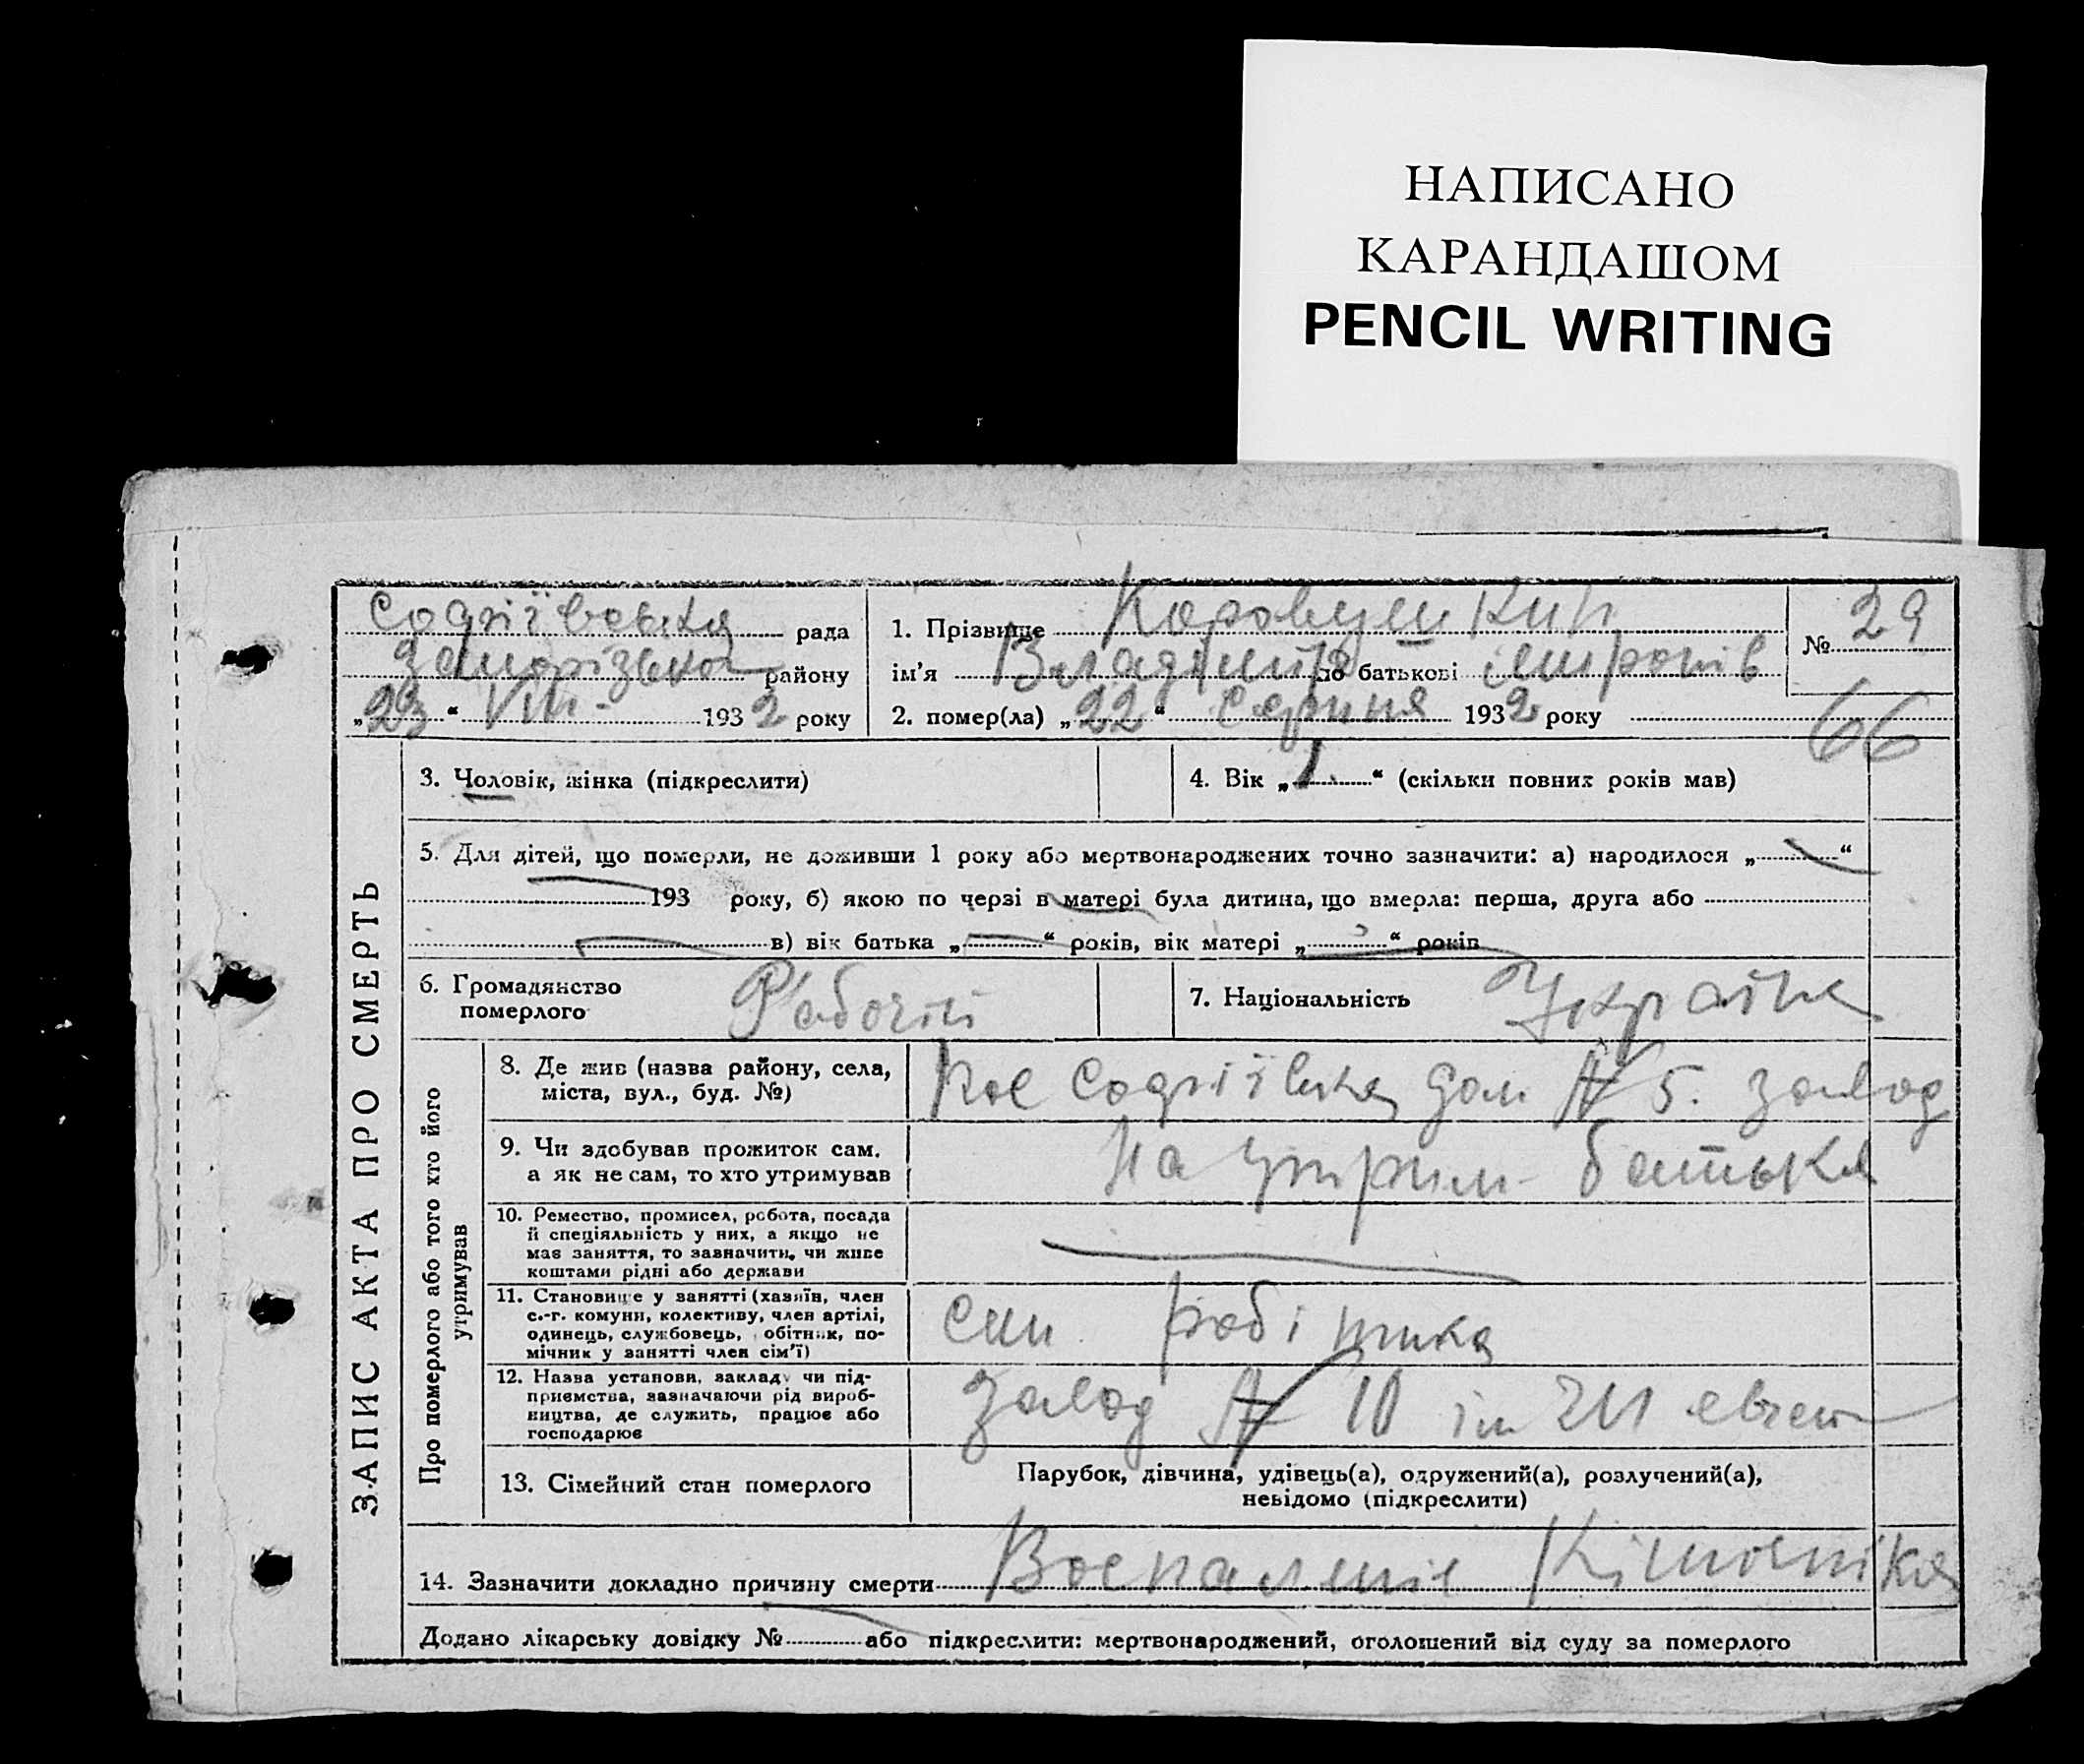 НАПИСАНО
КАРАНДАШОМ
PENCIL WRITING
Софіївська рада
Запорізько району
„23“ VIII - 1932 року
1. Прізвище
ім'я Владімир по батькові
2. помер(ла) „22“ Серпня 1932 року
№ 29
66
ЗАПИС АКТА ПРО СМЕРТЬ
3. Чоловік, жінка (підкреслити)
4. Вік „1.“ (скільки повних років мав)
5. Для дітей, що померли, не доживши 1 року або мертвонароджених точно зазначити: а) народилося „ “
193 року, б) якою по черзі в матері була дитина, що вмерла: перша, друга або
в) вік батька „ “ років, вік матері „ “ років
6. Громадянство
померлого
Рабочій
7. Національність
Україне
Про померлого або того хто його
утримував
8. Де жив (назва району, села,
міста, вул., буд. №)
Софіївка дом № 5. завод
9. Чи здобував прожиток сам,
а як не сам, то хто утримував
На утрим- батька
10. Ремество, промисел, робота, посада
й спеціяльність у них, а якщо не
мав заняття, то зазначити, чи живе
коштами рідні або держави
11. Становище у занятті (хазяїн, член
с.-г. комуни, колективу, член артілі,
одинець, службовець, робітник, по-
мічник у занятті член сім'ї)
син робітника
12. Назва установи, закладу чи під-
приємства, зазначаючи рід вироб-
ництва, де служить, працює або
господарює
завод № 10 ім
13. Сімейний стан померлого
Парубок, дівчина, удівець(а), одружений(а), розлучений(а),
невідомо (підкреслити)
14. Зазначити докладно причину смерти Воспаленіе Кішочніка
Додано лікарську довідку № або підкреслити: мертвонароджений, оголошений від суду за померлого